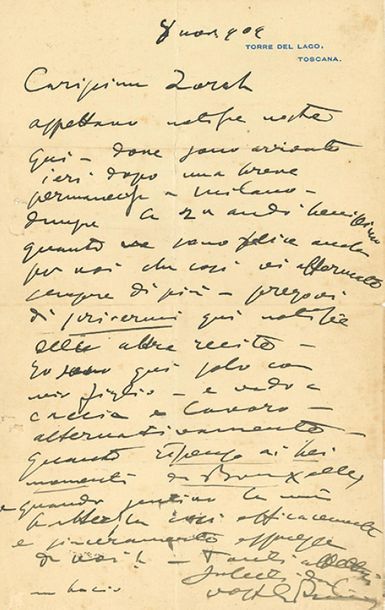 8 nov 909
TORRE DEL LAGO,
TOSCANA.
Carissimi Zorah
aspettavo notizie vostre
qui – dove sono arrivato
ieri dopo una breve
permanenza a Milano –
dunque la andò benissimo
quanto ne sono felice anche
per voi che così vi affermate
sempre di più – pregovi
di scrivermi qui notizie
delle altre recite –
Io sono qui solo con
mio figlio – e vado a
caccia e lavoro –
alternativamente –
quanto ripenso ai bei
momenti di Bruxelles
quando sentivo la mia
così efficacemente
e sinceramente espressa
da voi! – Tanti
saluti dal
vostro
un bacio